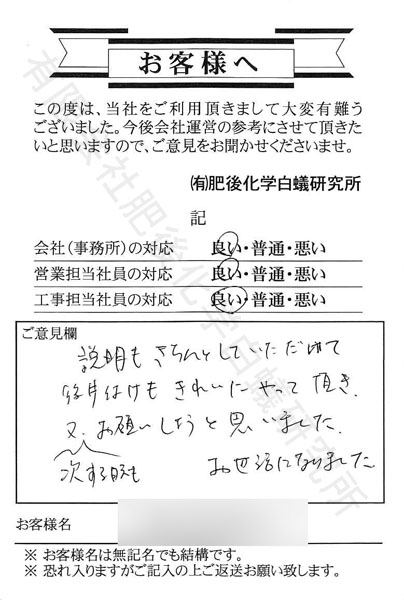 お客様へ
この度は、当社をご利用頂きまして大変有難う
ございました。今後会社運営の参考にさせて頂きた
いと思いますので、ご意見をお聞かせくださいませ。
㈲肥後化学白蟻研究所
記
会社(事務所)の対応 良い・普通・悪い
営業担当社員の対応 良い・普通・悪い
工事担当社員の対応 良い・普通・悪い
ご意見欄
説明もきちんとしていただけて
後片付けもきれいにやって頂き、
又、お願いしようと思いました。
次する時も
お世話になりました
お客様名
※ お客様名は無記名でも結構です。
※ 恐れ入りますがご記入の上ご返送お願い致します。
有限会社肥後化学白蟻研究所